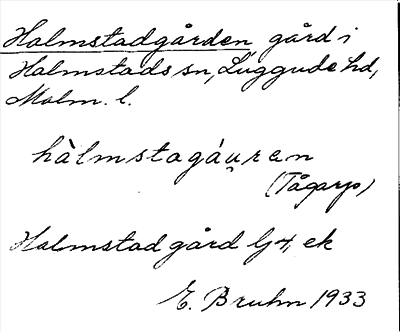 Halmstadgården gård i
Halmstads sn, Luggude hd,
Malm. l.
hàlmstagáu̯ren
(Tågarp)
Halmstad gård G 4, ek
E. Bruhn 1933